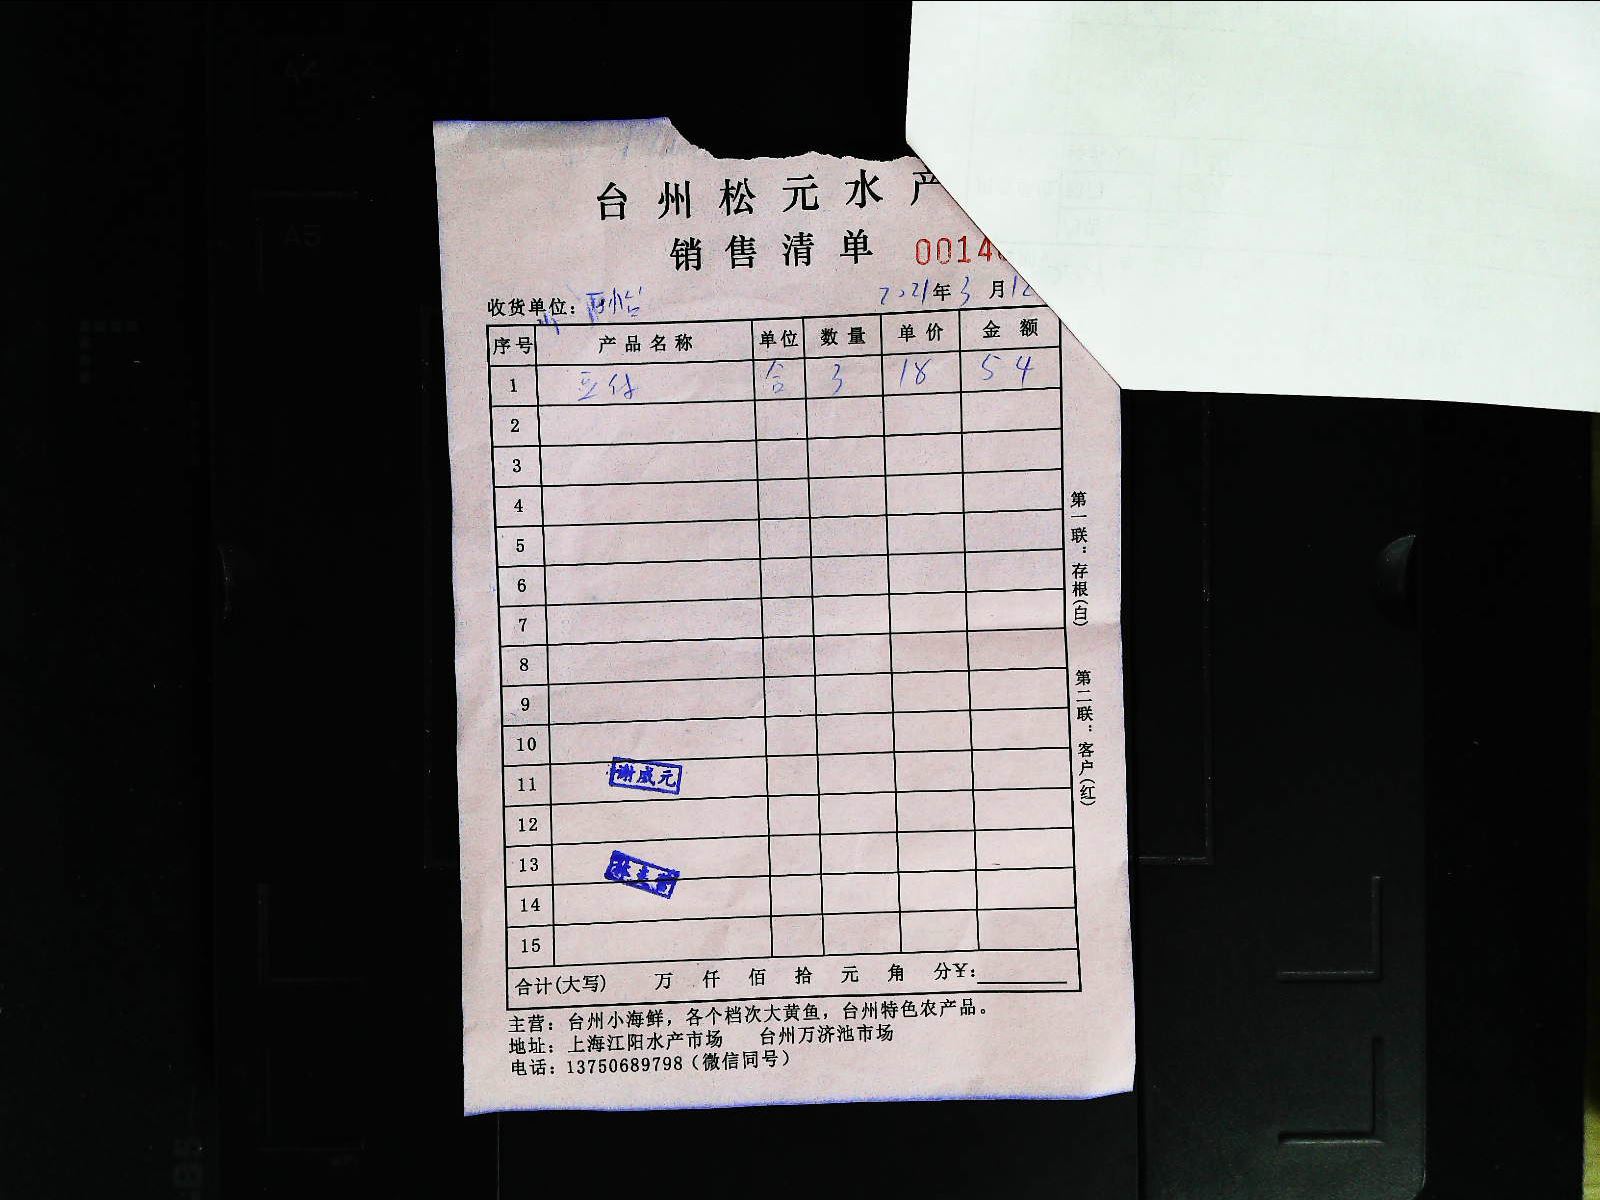 台州松元水产
销售清单 0014
收货单位： 2021年3月12
序号 产品名称 单位 数量 单价 金额
1 3 18 54
2
3
4
5
6
7
8
9
10
11 谢威元
12
13
14
15
合计(大写) 万 仟 佰 拾 元 角 分¥：
主营：台州小海鲜，各个档次大黄鱼，台州特色农产品。
地址：上海江阳水产市场 台州万济池市场
电话：13750689798（微信同号）
第一联：存根(白)
第二联：客户(红)
A5